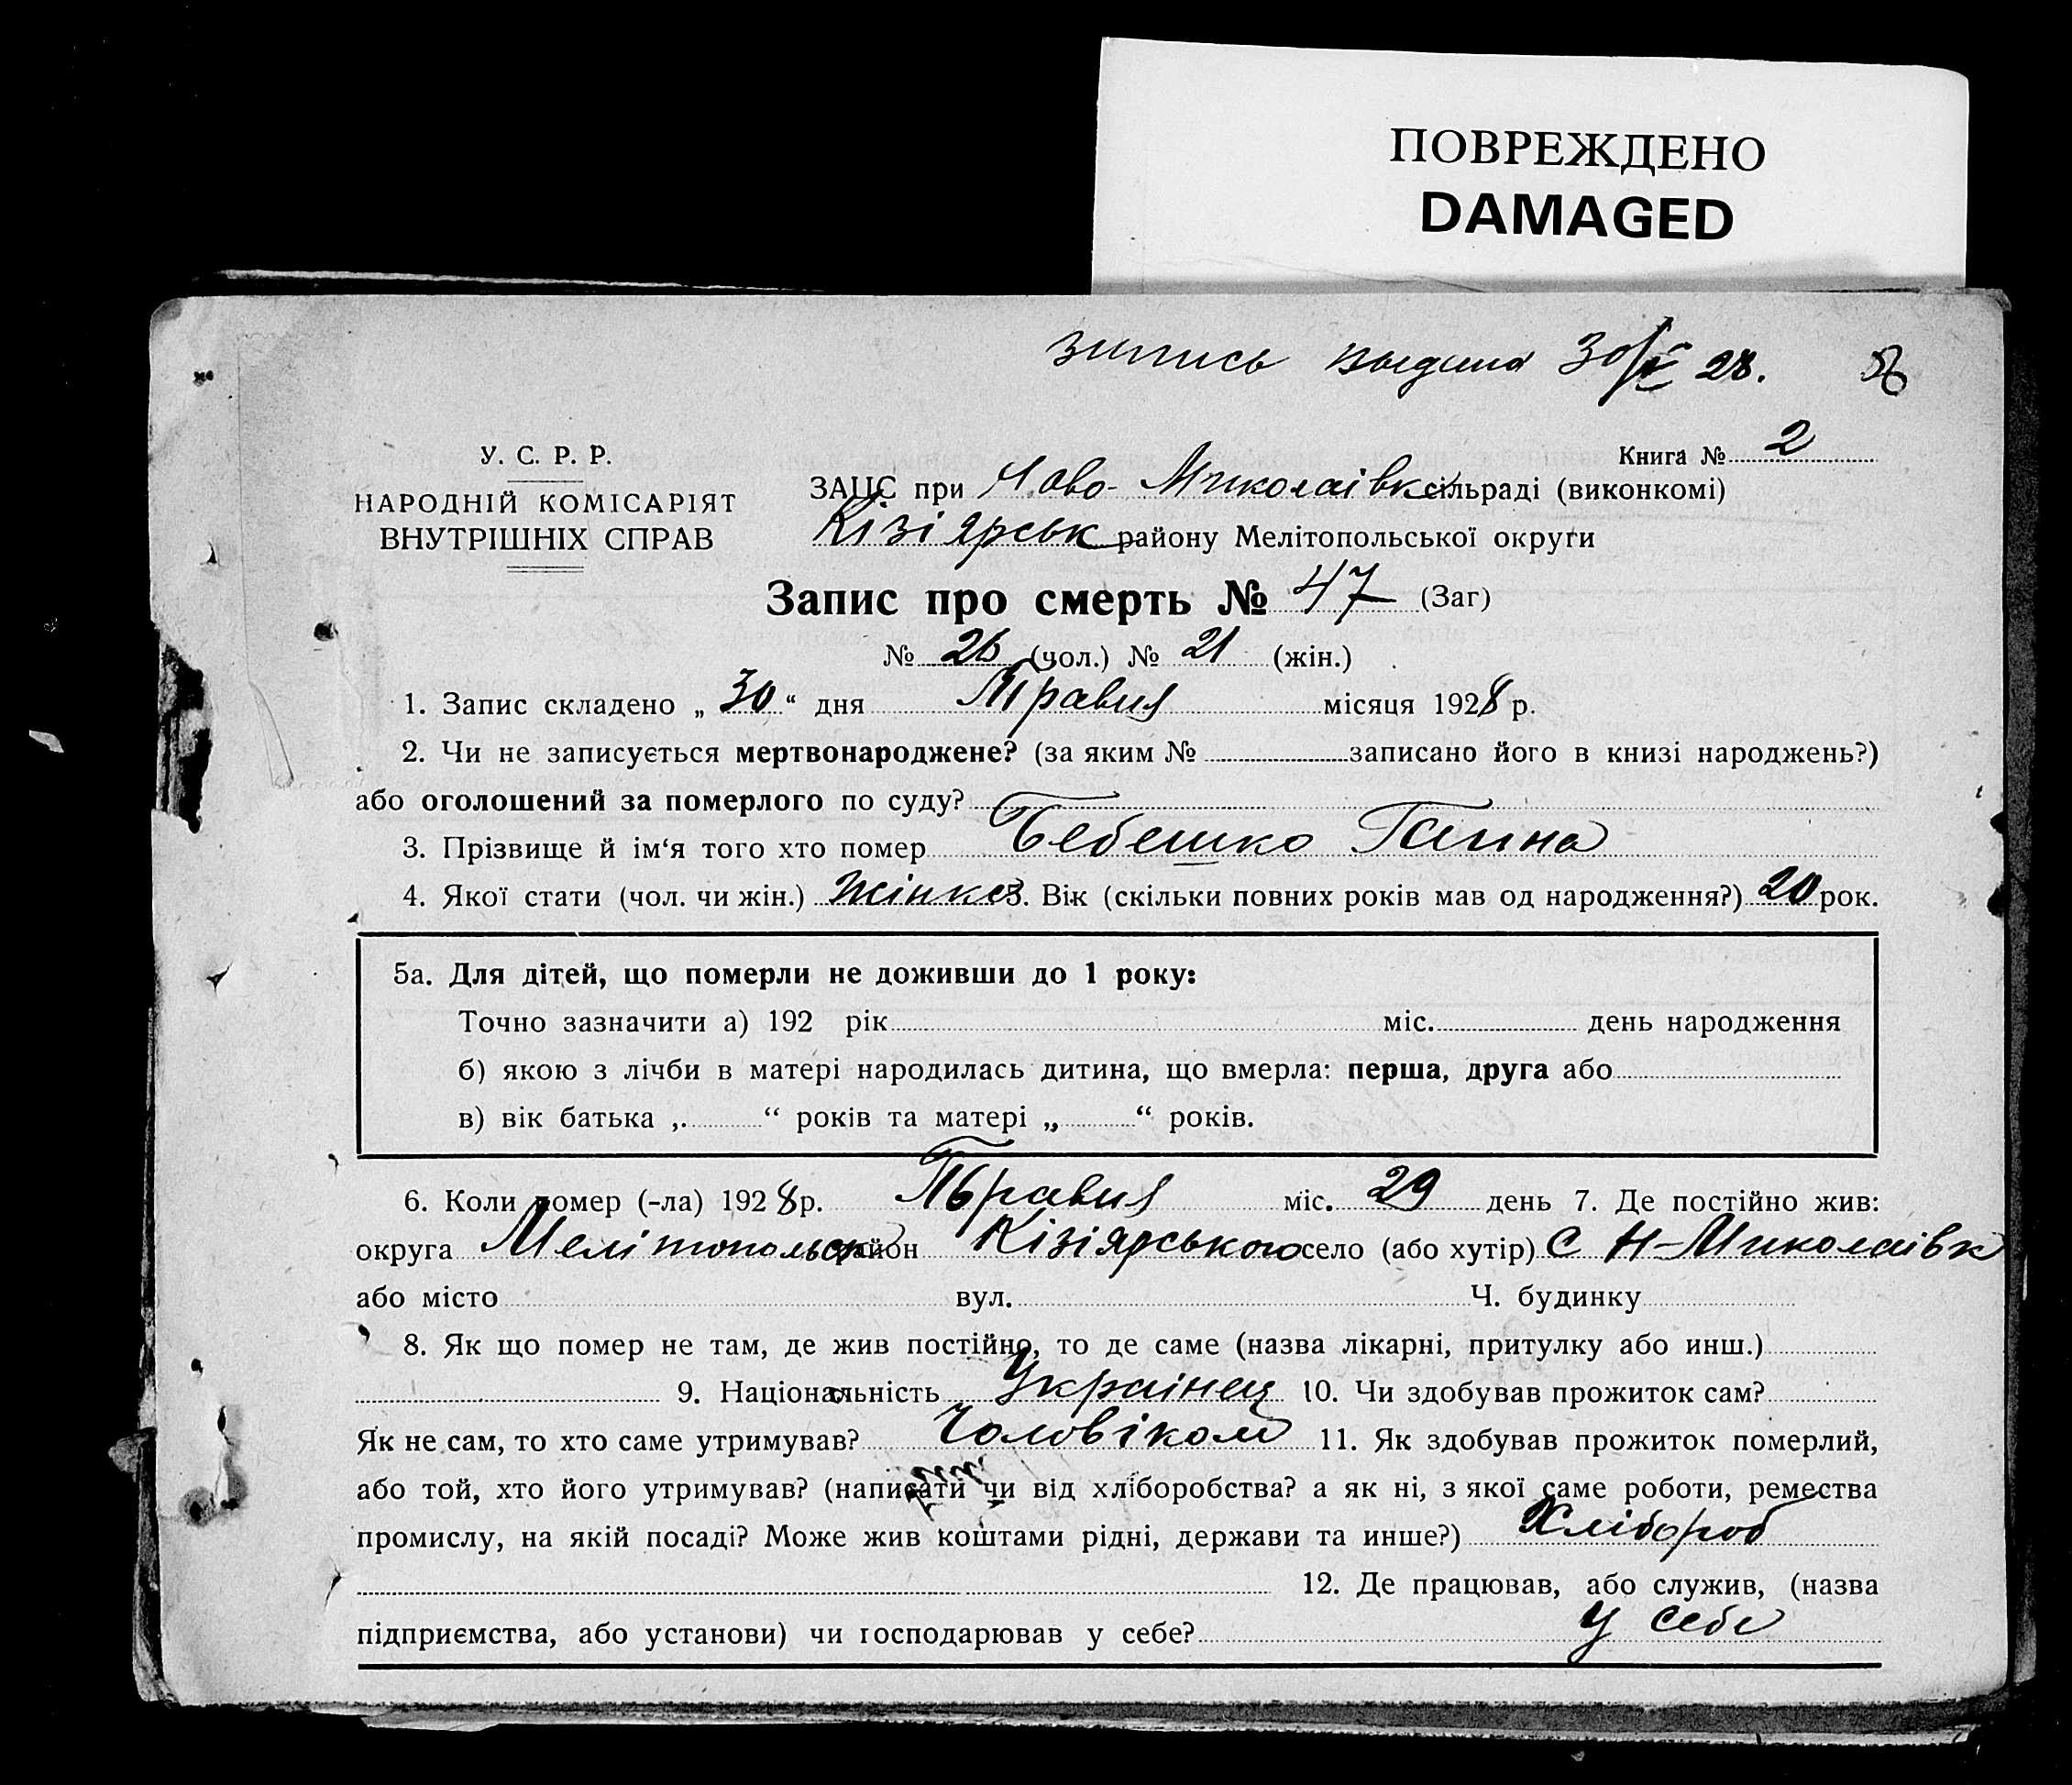 ПОВРЕЖДЕНО
DAMAGED
запись выдана 30/V 28. 56
У. С. Р. Р.
НАРОДНІЙ КОМІСАРІЯТ
ВНУТРІШНІХ СПРАВ
Книга № 2
ЗАЦС при Ново-Миколаівка сільраді (виконкомі)
Кізіярськ району Мелітопольської округи
Запис про смерть № 47 (Заг)
№ 26 (чол.) № 21 (жін.)
1. Запис складено „ 30 “ дня Травня місяця 1928 р.
2. Чи не записується мертвонароджене? (за яким № записано його в книзі народжень?)
або оголошений за померлого по суду?
3. Прізвище й ім‘я того хто помер Бебешко Ганна
4. Якої стати (чол. чи жін.) Жінка 5. Вік (скільки повних років мав од народження?) 20 рок.
5а. Для дітей, що померли не доживши до 1 року:
Точно зазначити а) 192 рік міс. день народження
б) якою з лічби в матері народилась дитина, що вмерла: перша, друга або
в) вік батька „ “ років та матері „ “ років.
6. Коли помер (-ла) 1928 р. Травня міс. 29 день 7. Де постійно жив:
округа Мелітопольськ район Кізіярського село (або хутір) с Н-Миколаівк
або місто вул. Ч. будинку
8. Як що помер не там, де жив постійно, то де саме (назва лікарні, притулку або инш.)
9. Національність Украінец 10. Чи здобував прожиток сам?
Як не сам, то хто саме утримував? Чоловіком 11. Як здобував прожиток померлий,
або той, хто його утримував? (написати чи від хліборобства? а як ні, з якої саме роботи, ремества
промислу, на якій посаді? Може жив коштами рідні, держави та инше?) Хлібороб
12. Де працював, або служив, (назва
підприємства, або установи) чи господарював у себе? У себе